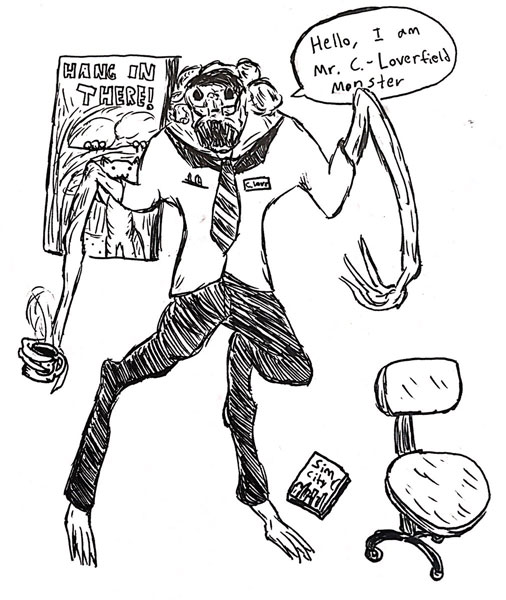 HANG IN
THERE!
Hello, I am
Mr. C.-Loverfield
Monster
C. Lover
Sim
City